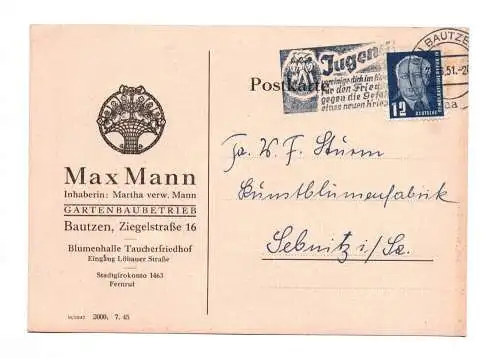 BAUTZEN
Jugend
51.-20
Postkarte
für den Frieden
gegen die Gefahr
eines neuen Krieges
12
DEUTSCHE
Max Mann
Inhaberin: Martha verw. Mann
GARTENBAUBETRIEB
Bautzen, Ziegelstraße 16
Blumenhalle Taucherfriedhof
Eingang Löbauer Straße
Stadtgirokonto 1463
Fernruf
2000. 7. 45
Fa. W. F. Sturm
Kunstblumenfabrik
Sebnitz i/Sa.